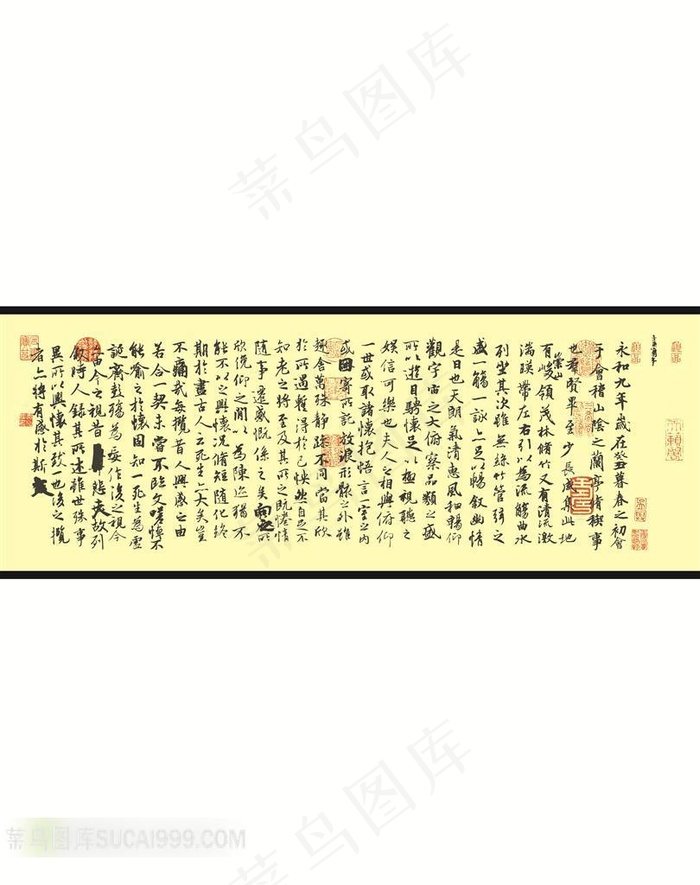 永和九年歲在癸丑暮春之初會
于會稽山陰之蘭亭脩禊事
也羣賢畢至少長咸集此地
有崇山峻領茂林脩竹又有清流激
湍暎帶左右引以為流觴曲水
列坐其次雖無絲竹管弦之
盛一觴一詠亦足以暢敘幽情
是日也天朗氣清惠風和暢仰
觀宇宙之大俯察品類之盛
所以遊目騁懷足以極視聽之
娛信可樂也夫人之相與俯仰
一世或取諸懷抱悟言一室之內
或因寄所託放浪形骸之外雖
趣舍萬殊靜躁不同當其欣
於所遇暫得於己怏然自足不
知老之將至及其所之既惓情
隨事遷感慨係之矣向之所
欣俛仰之間以為陳迹猶不
能不以之興懷況脩短隨化終
期於盡古人云死生亦大矣豈
不痛哉每攬昔人興感之由
若合一契未嘗不臨文嗟悼不
能喻之於懷固知一死生為虛
誕齊彭殤為妄作後之視今
亦由今之視昔悲夫故列
敘時人錄其所述雖世殊事
異所以興懷其致一也後之攬
者亦將有感於斯文
菜鸟图库
菜鸟图库
菜鸟图库
菜鸟图库
菜鸟图库SUCAI999.COM